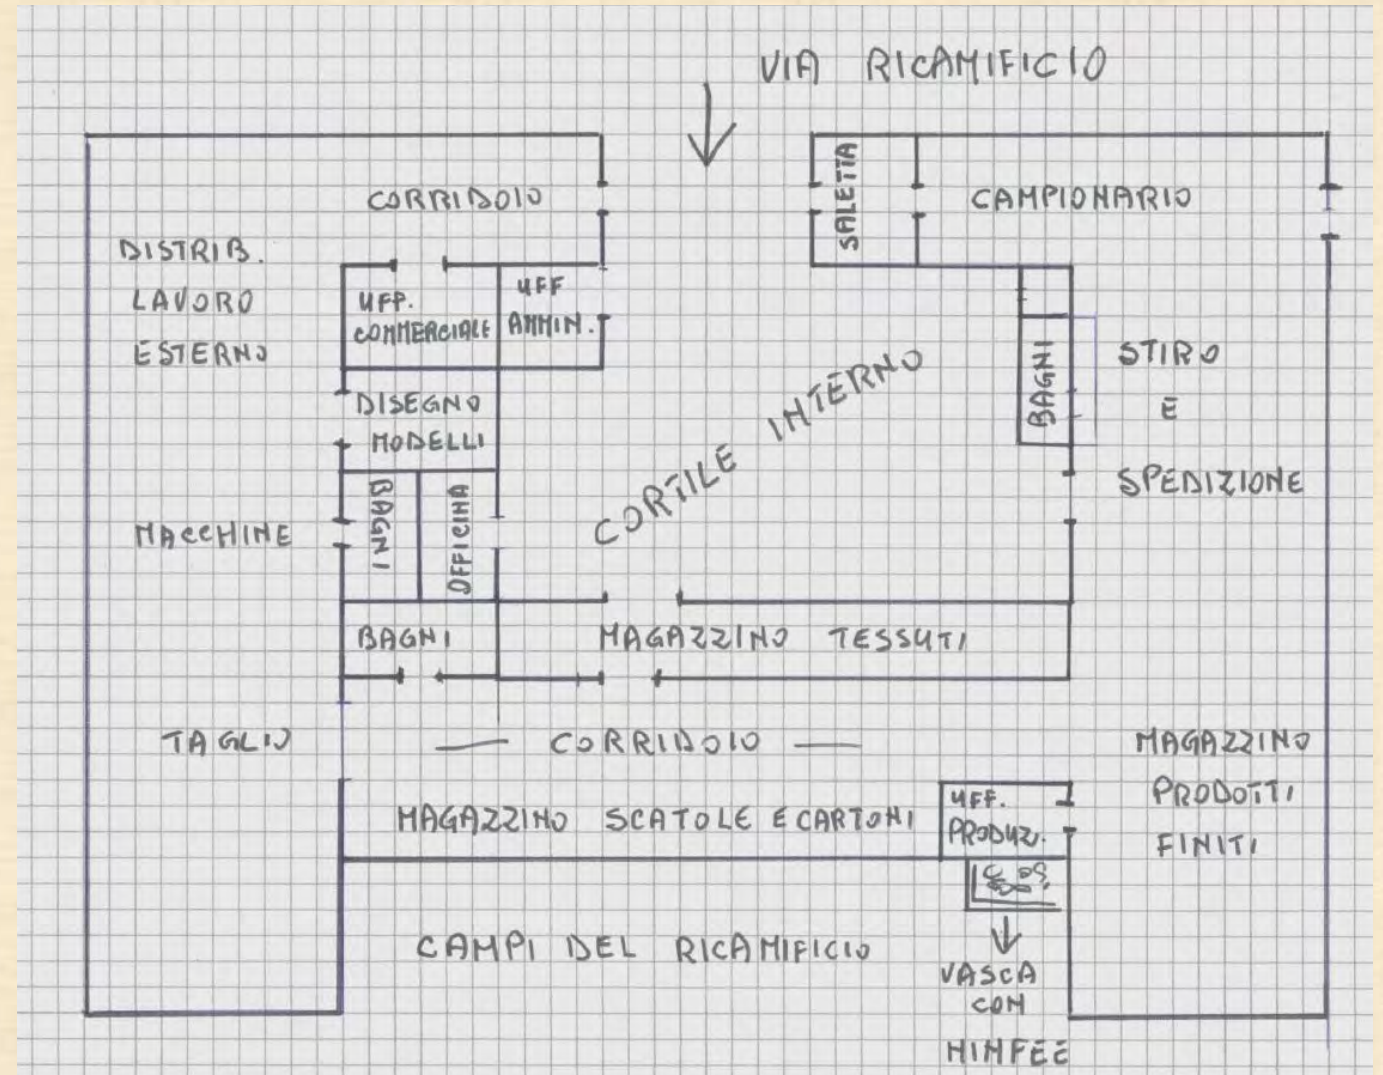 VIA RICAMIFICIO
CORRIDOIO
SALETTA
CAMPIONARIO
DISTRIB.
LAVORO
ESTERNO
UFF.
COMMERCIALE
UFF
AMMIN.
DISEGNO
MODELLI
CORTILE INTERNO
BAGNI
STIRO
E
SPEDIZIONE
MACCHINE
BAGNI
OFFICINA
BAGNI
MAGAZZINO TESSUTI
TAGLIO
CORRIDOIO
MAGAZZINO
PRODOTTI
FINITI
MAGAZZINO SCATOLE E CARTONI
UFF.
PRODUZ.
CAMPI DEL RICAMIFICIO
VASCA
CON
NINFEE